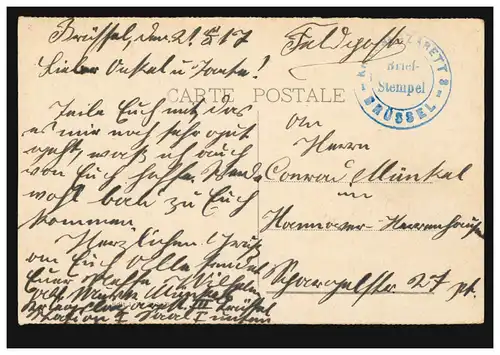 Brüssel, den 21. 17
Feldpost
Lieber Onkel u Tante!
KR LAZARETT 3
Brief-
Stempel
BRÜSSEL
CARTE POSTALE
Teile Euch mit das
es mir noch sehr gut
geht, was ich auch
von Euch hoffe. Werde
wohl bald zu Euch
kommen.
Herzlichen Gruß
an Euch alle sendet
Euer Neffe Wilhelm
III Brüssel
Station I Saal I unten
An
Herrn
Conrad Münkel
in
Hannover-Herrenhausen
27 pt.